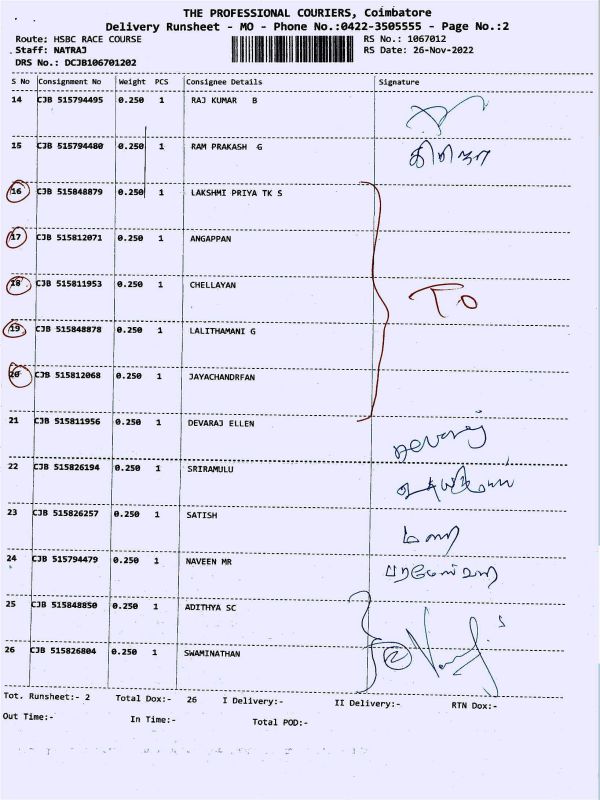 THE PROFESSIONAL COURIERS, Coimbatore
Delivery Runsheet - MO - Phone No.:0422-3505555 - Page No.:2
Route: HSBC RACE COURSE RS No.: 1067012
Staff: NATRAJ RS Date: 26-Nov-2022
DRS No.: DCJB106701202
S No Consignment No Weight PCS Consignee Details Signature
14 CJB 515794495 0.250 1 RAJ KUMAR B
15 CJB 515794480 0.250 1 RAM PRAKASH G
16 CJB 515848879 0.250 1 LAKSHMI PRIYA TK S
17 CJB 515812071 0.250 1 ANGAPPAN
18 CJB 515811953 0.250 1 CHELLAYAN
TO
19 CJB 515848878 0.250 1 LALITHAMANI G
20 CJB 515812068 0.250 1 JAYACHANDRFAN
21 CJB 515811956 0.250 1 DEVARAJ ELLEN
22 CJB 515826194 0.250 1 SRIRAMULU
23 CJB 515826257 0.250 1 SATISH
24 CJB 515794479 0.250 1 NAVEEN MR
25 CJB 515848850 0.250 1 ADITHYA SC
26 CJB 515826804 0.250 1 SWAMINATHAN 2
Tot. Runsheet:- 2 Total Dox:- 26 I Delivery:- II Delivery:- RTN Dox:-
Out Time:- In Time:- Total POD:-